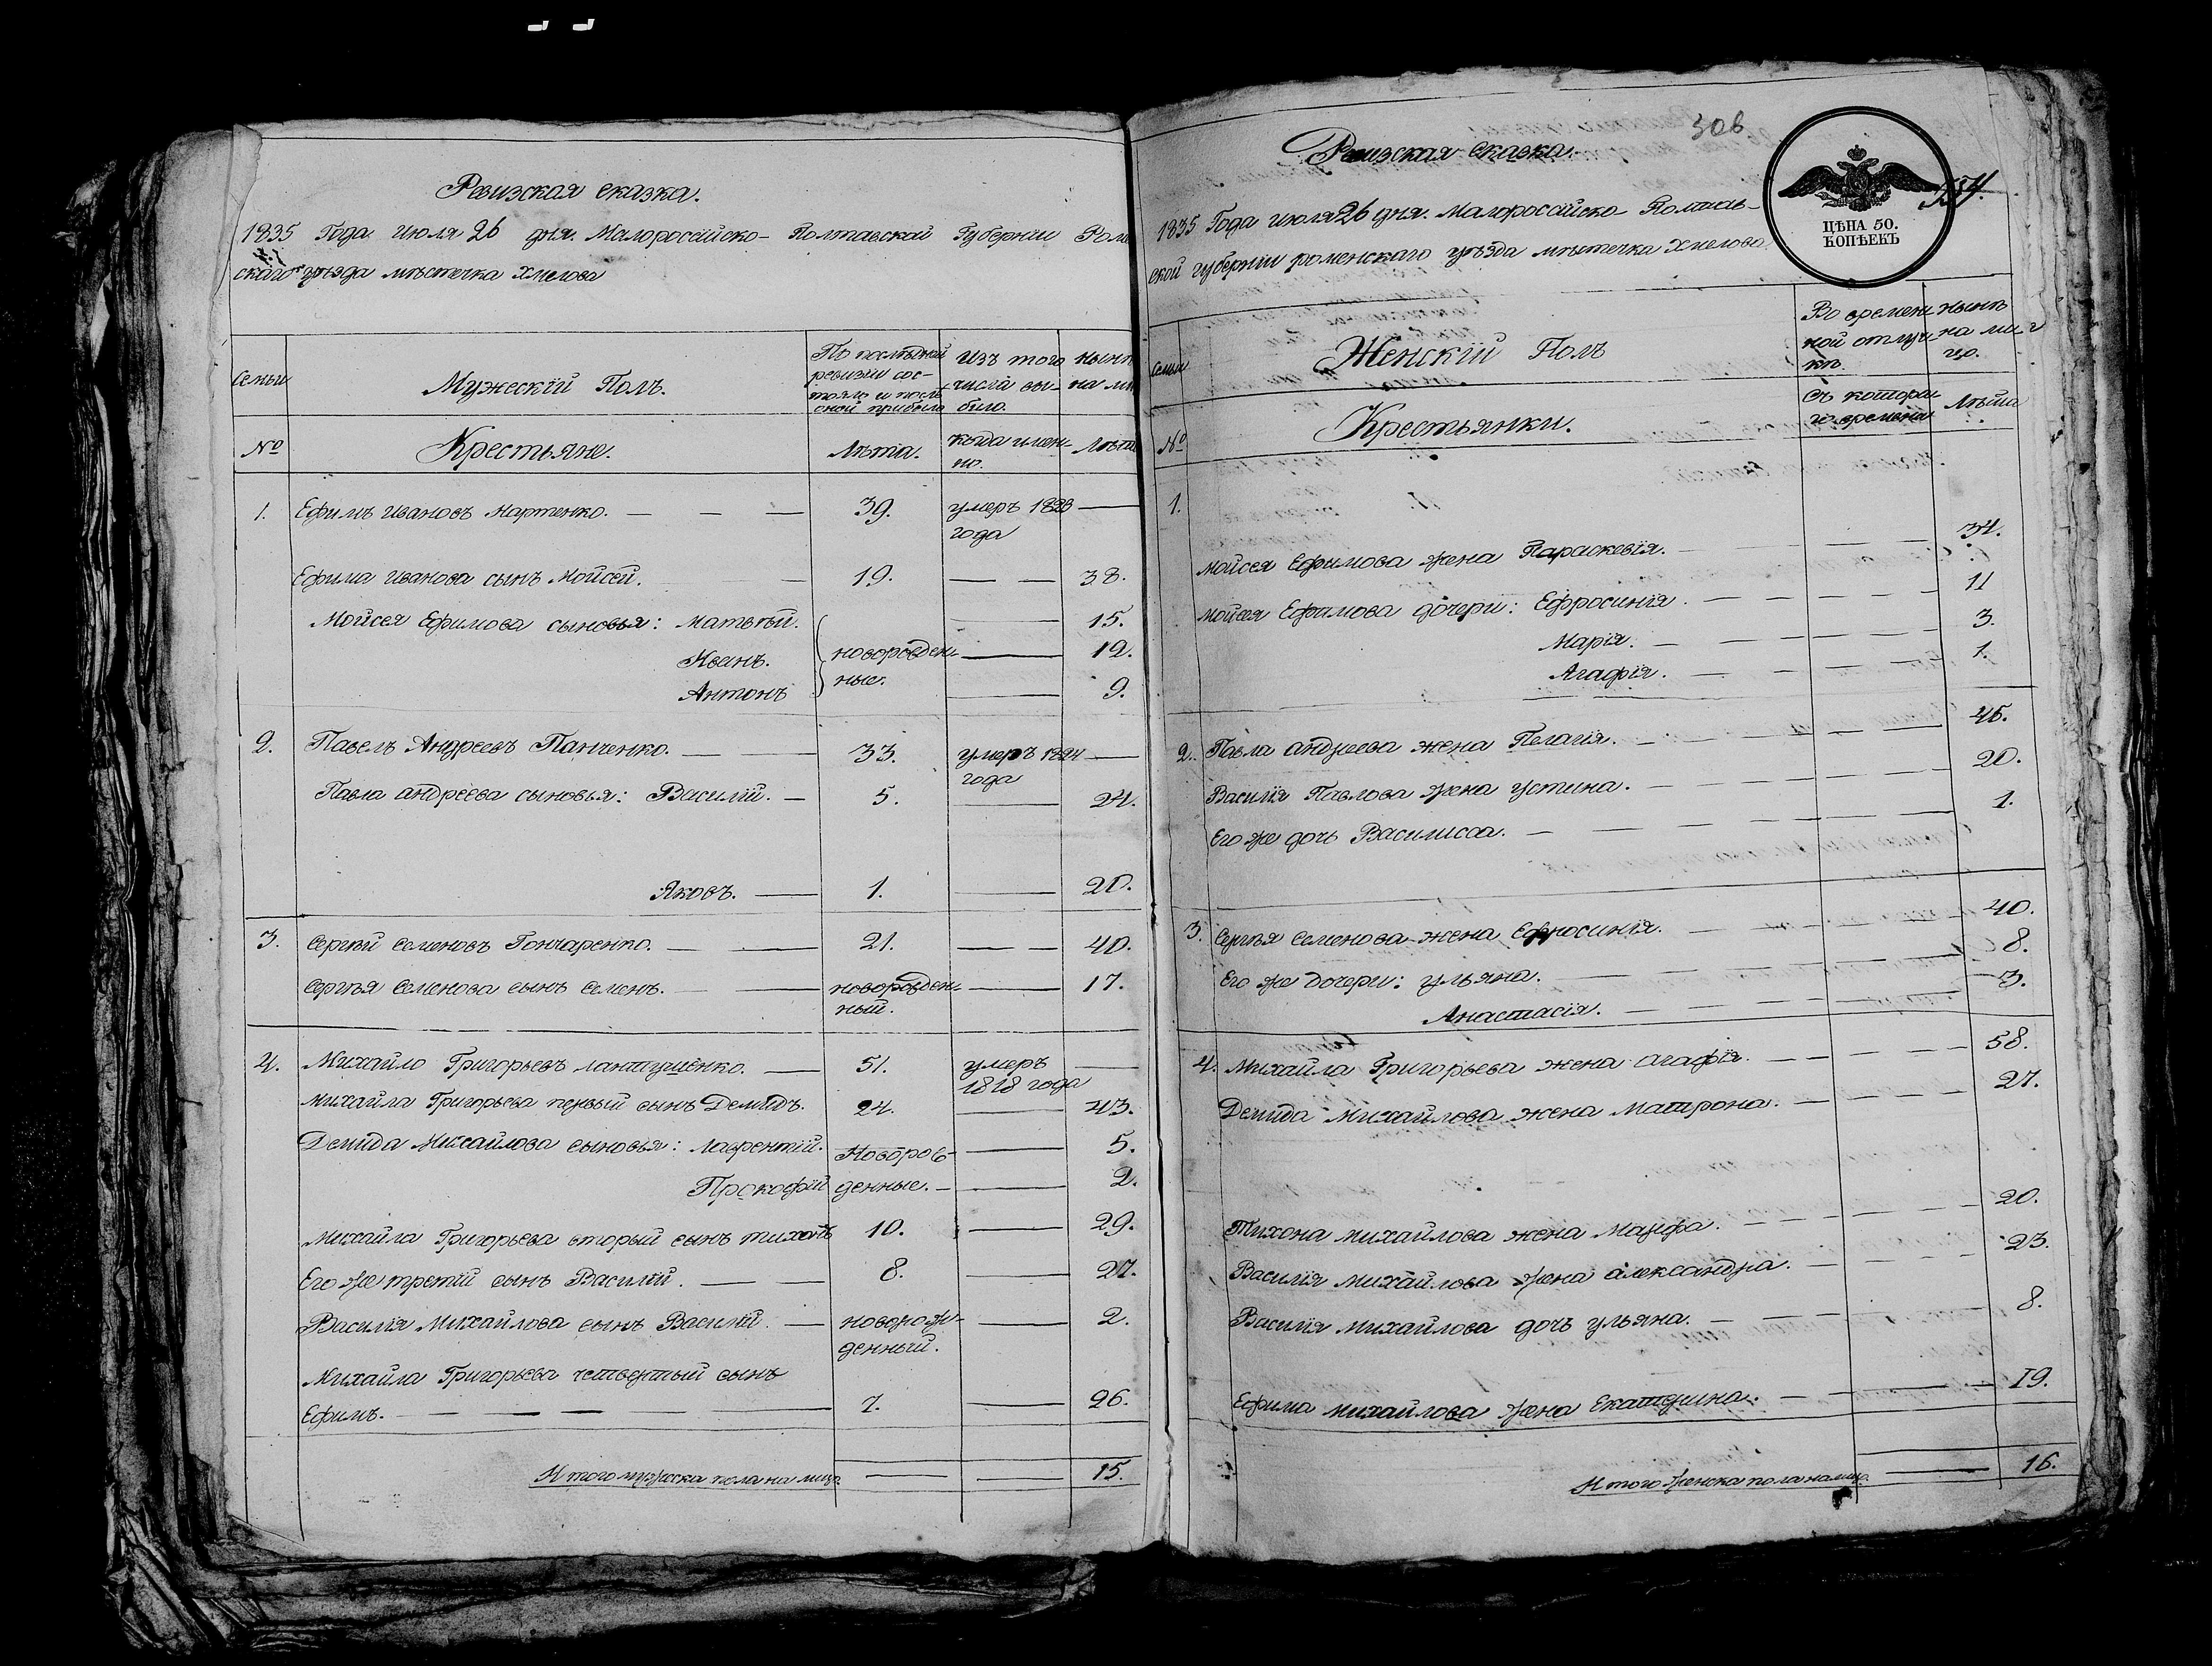 Ревизская сказка.
1835 Года июля 26 дня. Малороссiйско-Полтавской Губернiи Ром
скаго уѣзда мѣстечка Хмелова
семьи
Мужескiй Полъ.
По послѣдней ревизiи сос-
тояло и послѣ оной прибыло
Изъ того числа вы-
было.
нынѣ на ли
№
Крестьяне.
Лѣта.
когда имен-
но.
Лѣта
1. Ефимъ Ивановъ Мартенко. — 39. умеръ 1828 года —
Ефима Иванова сынъ Мойсей. — 19. — 38.
Мойсея Ефимова сыновья: Матвѣй. — 15.
Иванъ. новорожден-
ные. — 12.
Антонъ — 9.
2. Павелъ Андреевъ Панченко. — 33. умеръ 1824 года —
Павла Андреева сыновья: Василiй. — 5. — 24.
Яковъ. — 1. — 20.
3. Сергѣй Семеновъ Гончаренко. — 21. — 40.
Сергѣя Семенова сынъ Семенъ. — новорожден-
ный. — 17.
4. Михайло Григорьевъ Лантушенко. — 51. умеръ 1818 года —
Михайла Григорьева первый сынъ Демидъ. 24. — 43.
Демида Михайлова сыновья: Лаврентiй. Новорож- — 5.
Прокофiй денные. — 2.
Михайла Григорьева вторый сынъ Тихонъ 10. — 29.
Его же третiй сынъ Василiй. — 8. — 27.
Василiя Михайлова сынъ Василiй. — новорож-
денный. — 2.
Михайла Григорьева четвертый сынъ
Ефимъ. — 7. — 26.
Итого мужеска пола на лицо — — 15.
306
Ревизская сказка.
ЦѢНА 50.
КОПѢЕКЪ
554.
1835 Года июля 26 дня. Малороссiйско Полтав-
ской губернiи роменскаго уѣзда мѣстечка Хмелова
семьи
Женскiй Полъ
Во времен-
ной отлуч-
кѣ.
нынѣ
на ли-
цо.
№
Крестьянки.
Съ котора-
го времени
Лѣта
1.
Мойсея Ефимова жена Параскевiя. — 34.
Мойсея Ефимова дочери: Ефросинiя. — 11
Марiя. — 3.
Агафiя. — 1.
2. Павла Андреева жена Пелагiя. — 45.
Василiя Павлова жена Устина. — 20.
Его же дочь Василисса. — 1.
3. Сергѣя Семенова жена Ефросинiя. — 40.
Его же дочери: Ульяна. — 8.
Анастасiя. — 3.
4. Михайла Григорьева жена Агафiя. — 58.
Демида Михайлова жена Матрона. — 27.
Тихона Михайлова жена Марфа. — 20.
Василiя Михайлова жена Александра. — 23.
Василiя Михайлова дочь Ульяна. — 8.
Ефима Михайлова жена Екатерина. — 19.
Итого женска пола налицо. — 16.